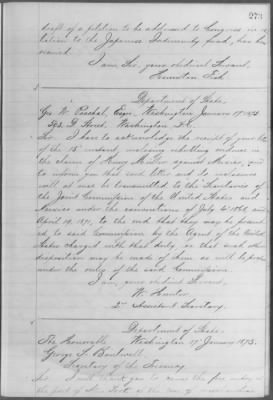 273
draft of a petition to be addressed to Congress in re-
lation to the Japanese Indemnity fund, has been
received.
I am Sir, your obedient Servant,
Hamilton Fish
Department of State.
Geo. W. Paschal, Esqr. Washington, January 17th 1873.
Street, Washington, D.C.
Sir. I have to acknowledge the receipt of your letter
of the 15th instant, enclosing rebutting evidence in
the claim of Henry Miller against Mexico, and
to inform you that said letter and its enclosures
will at once be transmitted to the Secretaries of
the Joint Commission of the United States and
Mexico under the conventions of July 4th 1868 and
April 19, 1871, to the end that they may be present-
ed to said Commission by the Agent of the United
States charged with that duty, or that such other
disposition may be made of them as will be proper
under the rules of the said Commission.
I am, your obedient Servant,
W. Hunter
2d Assistant Secretary
Department of State.
The Honorable Washington 17th January 1873.
George S. Boutwell
Secretary of the Treasury
Sir. I will thank you to cause the